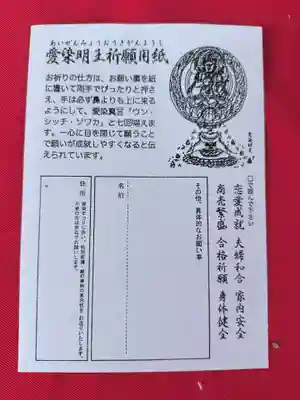 あいぜんみょうおうきがんようし
愛染明王祈願用紙
お祈りの仕方は、お願い事を紙
に書いて両手でぴったりと押さ
え、手は必ず鼻よりも上に来る
ようにして、愛染真言「ウン・
シッチ・ソワカ」と七回唱えま
す。一心に目を閉じて願うこと
で願いが成就しやすくなると伝
えられています。
○で囲んで下さい
恋愛成就 夫婦和合 家内安全
商売繁盛 合格祈願 身体健全
その他、具体的なお願い事
名前
住所